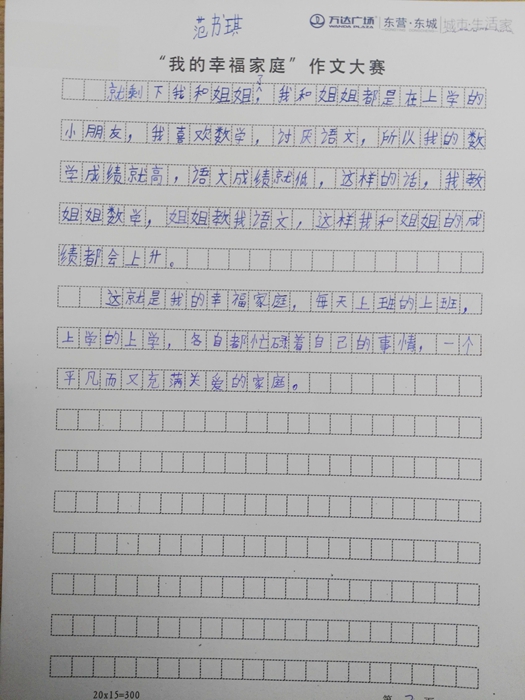 范书琪
万达广场 WANDA PLAZA 东营·东城 城市·生活家
“我的幸福家庭”作文大赛
就剩下我和姐姐了，我和姐姐都是在上学的
小朋友，我喜欢数学，讨厌语文，所以我的数
学成绩就高，语文成绩就低，这样的话，我教
姐姐数学，姐姐教我语文，这样我和姐姐的成
绩都会上升。
这就是我的幸福家庭，每天上班的上班，
上学的上学，各自都忙碌着自己的事情，一个
平凡而又充满关爱的家庭。
20x15=300